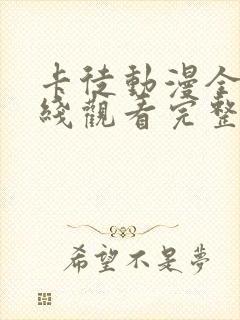 卡徒動漫全
綫觀看完整
希望不是夢